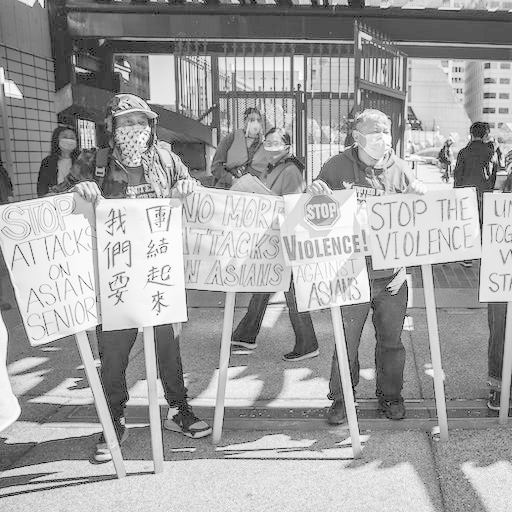 STOP
ATTACKS
ON
ASIAN
SENIOR
團結起來
我們要
NO MORE
ATTACKS
ON ASIANS
STOP
VIOLENCE!
AGAINST
ASIANS
STOP THE
VIOLENCE
UN
TOG
W
STA